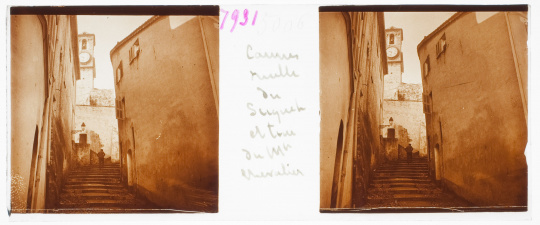 7931
Cannes
ruelle
du
Suquet
et tour
du Mt
Chevalier